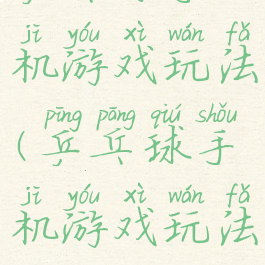 jī yóu xì wán fǎ
机游戏玩法
pīng pāng qiú shǒu
(乒乓球手
jī yóu xì wán fǎ
机游戏玩法